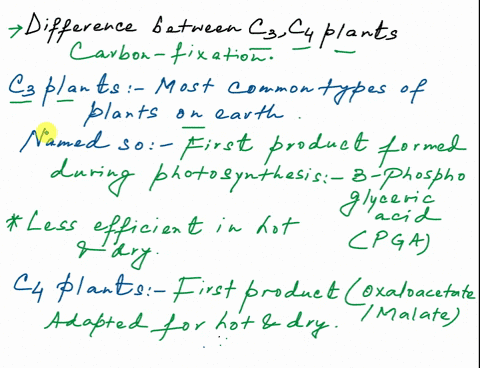 → Difference between C3, C4 plants
Carbon-fixation.
C3 plants:- Most common types of
plants on earth.
Named so:- First product formed
during photosynthesis:- 3-Phospho
glyceric
acid
(PGA)
* Less efficient in hot
& dry.
C4 plants:- First product (Oxaloacetate
/Malate)
Adapted for hot & dry.